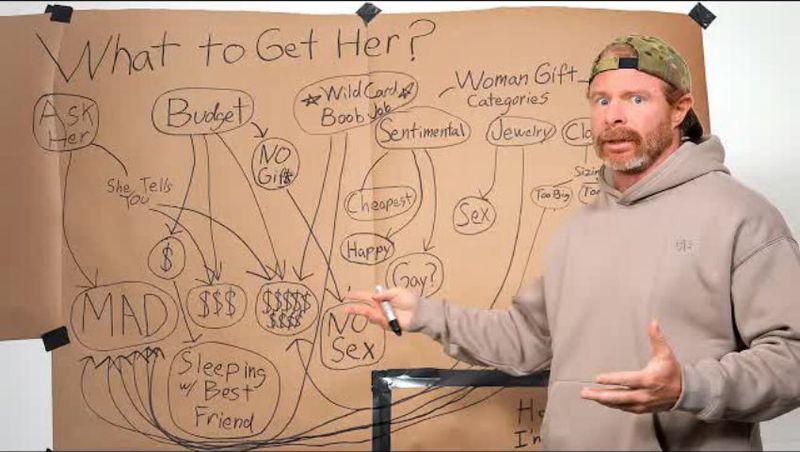 What to Get Her?
Ask
Her
Budget
☆Wild Card☆
Boob Job
Woman Gift
Categories
Sentimental
Jewelry
Clo
NO
Gift
She Tells
You
Sizin
Too Big
Too
Cheapest
Sex
Happy
Gay?
$
MAD
$$$
$$$$$
$$$$
NO
Sex
Sleeping
w/ Best
Friend
H
I'm